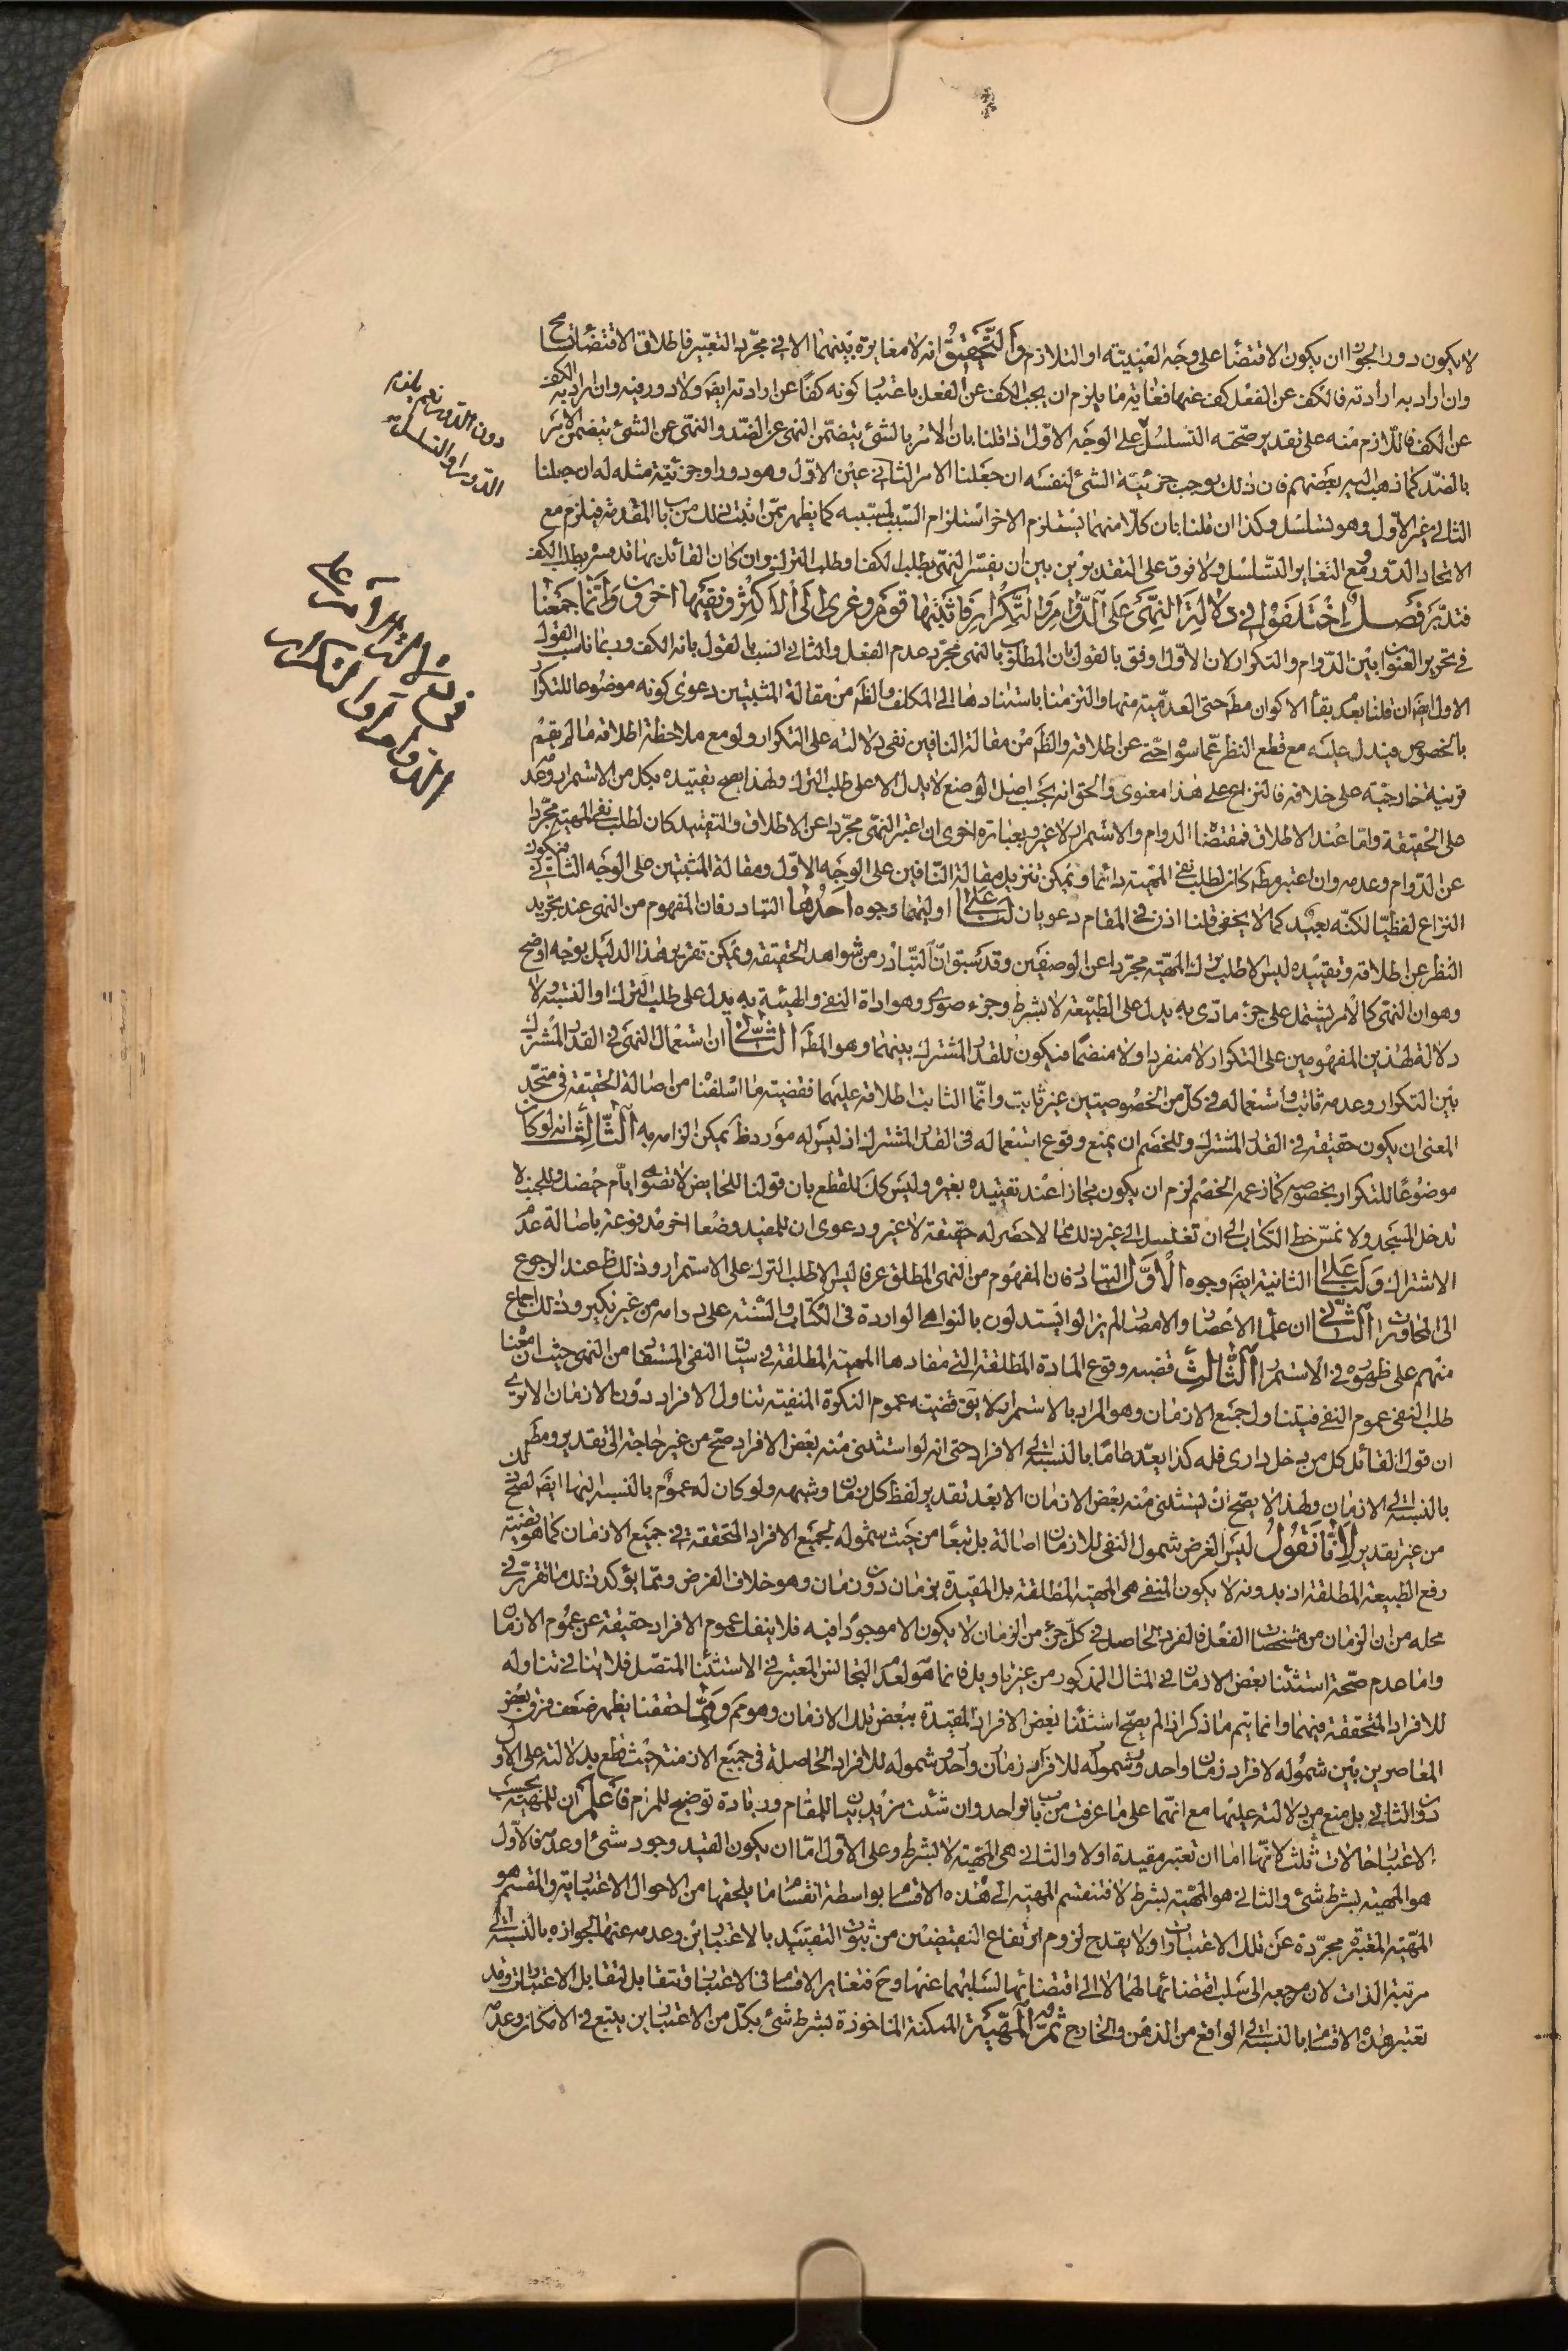 لا يكون دور الجواز ان يكون الاقتضاء على وجه العينية او التلازم والتحقيق انه لا مغايرة بينهما الا في مجرد التعبير فاطلاق الاقتضاء تسامح
وان اراد به ارادته فالكف عن الفعل كف عنها فغاية ما يلزم ان يجب الكف عن الفعل باعتبار كونه كفا عن ارادته ايضا ولا دور فيه وان اراد به الكف
عن الكف فاللازم منه على تقدير صحته التسلسل على الوجه الاول اذا قلنا بان الامر بالشئ يتضمن النهى عن الضد والنهى عن الشئ يتضمن الامر
بالضد كما ذهب اليه بعضهم فان ذلك يوجب جزئية الشئ لنفسه ان جعلنا الامر الثانى عين الاول وهو دور او جزئية مثله له ان جعلنا
الثانى غير الاول وهو تسلسل وكذا ان قلنا بان كلا منهما يستلزم الاخر استلزام السبب لمسببه كما يظهر ممن اثبت ذلك من باب المقدمة فيلزم مع
الاتحاد الدور ومع التغاير التسلسل ولا فرق على التقديرين بين ان يفسر النهى بطلب الكف او طلب الترك وان كان القائل بها قد فسره بطلب الكف
فتدبر فصل اختلفوا في دلالة النهى على الدوام والتكرار فاثبتها قوم وعزى الى الاكثر ونفيها اخرون وانما جمعنا
في تحرير العنوان بين الدوام والتكرار لان الاول اوفق بالقول بان المطلوب بالنهى مجرد عدم الفعل والثانى انسب بالقول بانه الكف وربما ناسب القول
الاول ايضا ان قلنا بعدم بقاء الاكوان مط حتى العدمية منها والتزمنا باستنادها الى المكلف والظ من مقالة المثبتين دعوى كونه موضوعا للتكرار
بالخصوص فيدل عليه مع قطع النظر عما سواه حتى عن اطلاقه والظ من مقالة النافين نفى دلالته على التكرار ولو مع ملاحظة اطلاقه ما لم يقم
قرينة خارجية على خلافه فالنزاع على هذا معنوى والحق انه بحسب اصل الوضع لا يدل الا على طلب الترك ولهذا يصح تقييده بكل من الاستمرار وعدمه
على الحقيقة واما عند الاطلاق فمقتضاه الدوام والاستمرار لا غير وبعبارة اخرى ان اعتبر النهى مجردا عن الاطلاق والتقييد كان لطلب نفى المهية مجردا
عن الدوام وعدمه وان اعتبر مط كان لطلب نفى المهية دائما ويمكن تنزيل مقالة النافين على الوجه الاول ومقالة المثبتين على الوجه الثانى فيكون
النزاع لفظيا لكنه بعيد كما لا يخفى فلنا اذن في المقام دعويان لنا على اوليهما وجوه احدها التبادر فان المفهوم من النهى عند تجريد
النظر عن اطلاقه وتقييده ليس الا طلب ترك المهية مجردا عن الوصفين وقد سبق ان التبادر من شواهد الحقيقة ويمكن تقرير هذا الدليل بوجه اوضح
وهو ان النهى كالامر يشتمل على جزء مادى به يدل على الطبيعة لا بشرط وجزء صورى وهو اداة النفى والهيئة به يدل على طلب الترك او النسبة ولا
دلالة لهذين المفهومين على التكرار لا منفردا ولا منضما فيكون للقدر المشترك بينهما وهو المط الثانى ان استعمال النهى في القدر المشترك
بين التكرار وعدمه ثابت واستعماله في كل من الخصوصيتين غير ثابت وانما الثابت اطلاقه عليهما فقضية ما اسلفنا من اصالة الحقيقة في متحد
المعنى ان يكون حقيقة في القدر المشترك وللخصم ان يمنع وقوع استعماله في القدر المشترك اذ ليس له مورد ظ يمكن الزامه به الثالث انه لو كان
موضوعا للتكرار بخصوصه كما زعمه الخصم لزم ان يكون مجازا عند تقييده بغيره وليس كك للقطع بان قولنا للحايض لا تصلى ايام حيضك وللجنب لا
تدخل المسجد ولا تمس خط الكتاب الى ان تغتسل الى غير ذلك مما لا حصر له حقيقة لا غير ودعوى ان للمقيد وضعا اخر مدفوعة باصالة عدم
الاشتراك ولنا على الثانية ايضا وجوه الاول التبادر فان المفهوم من النهى المطلق عرفا ليس الا طلب الترك على الاستمرار وذلك ظ عند الرجوع
الى المحاورات الثانى ان علماء الاعصار والامصار لم يزالوا يستدلون بالنواهى الواردة في الكتاب والسنة على دوامه من غير نكير وذلك اجماع
منهم على ظهوره في الاستمرار الثالث قضية وقوع المادة المطلقة التى مفادها المهية المطلقة في سياق النفى المستفاد من النهى حيث ان معناه
طلب النفى عموم النفى فيتناول جميع الازمان وهو المراد بالاستمرار لا يق قضية عموم النكرة المنفية تناول الافراد دون الازمان الا ترى
ان قول القائل كل من يدخل دارى فله كذا يعد عاما بالنسبة الى الافراد حتى انه لو استثنى منه بعض الافراد صح من غير حاجة الى تقدير ومط
بالنسبة الى الازمان ولهذا لا يصح ان يستثنى منه بعض الازمان الا بعد تقدير لفظ كل زمان وشبهه ولو كان له عموم بالنسبة اليها ايضا لصح ذلك
من غير تقدير لانا نقول ليس الغرض شمول النفى للازمان اصالة بل تبعا من حيث شموله لجميع الافراد المتحققة في جميع الازمان كما هو قضية
رفع الطبيعة المطلقة اذ بدونه لا يكون المنفى هى المهية المطلقة بل المقيدة بزمان دون زمان وهو خلاف الفرض ومما يؤكد ذلك ما تقرر في
محله من ان الزمان من مشخصات الفعل فالفرد الحاصل في كل جزء من الزمان لا يكون الا موجودا فيه فلا ينفك عموم الافراد حقيقة عن عموم الازمان
واما عدم صحة استثناء بعض الازمان في المثال المذكور من غير تاويل فانما هو لعدم التجانس المعتبر في الاستثناء المتصل فلا ينافي تناوله
للافراد المتحققة فيهما وانما يتم ما ذكر اذا لم يصح استثناء بعض الافراد المقيدة ببعض تلك الازمان وهو مم ومما حققنا يظهر ضعف فرق بعض
المعاصرين بين شموله لافراد زمان واحد وشموله للافراد زمان واحد وشموله للافراد الحاصلة في جميع الازمنة حيث قطع بدلالته على الاول
دون الثانى بل منع من دلالته عليها مع انهما على ما عرفت من باب واحد وان شئت مزيد بيان للمقام وزيادة توضيح للمرام فاعلم ان للمهية بحسب
الاعتبار حالات ثلث لانها اما ان تعتبر مقيدة اولا والثانى هى المهية لا بشرط وعلى الاول اما ان يكون القيد وجود شئ او عدمه فالاول
هو المهية بشرط شئ والثانى هو المهية بشرط لا فتنقسم المهية الى هذه الاقسام بواسطة انقسام ما يلحقها من الاحوال الاعتبارية والمقسم هو
المهية المعتبرة مجردة عن تلك الاعتبارات ولا يقدح لزوم ارتفاع النقيضين من ثبوت التقييد بالاعتبارين وعدمه عنها لجوازه بالنسبة الى
مرتبة الذات لان مرجعه الى سلب اقتضائها لهما لا الى اقتضائها لسلبهما عنها وح فتغاير الاقسام في الاعتبار وتتقابل لتقابل الاعتبارات وقد
تعتبر هذه الاقسام بالنسبة الى الواقع من الذهن والخارج ثم المهية الممكنة الماخوذة بشرط شئ بكل من الاعتبارين يتبع في الامكان وعدمه
دون الدور نعم يلزم
الدور او التسلسل
في دلالة النهى على
الدوام والتكرار